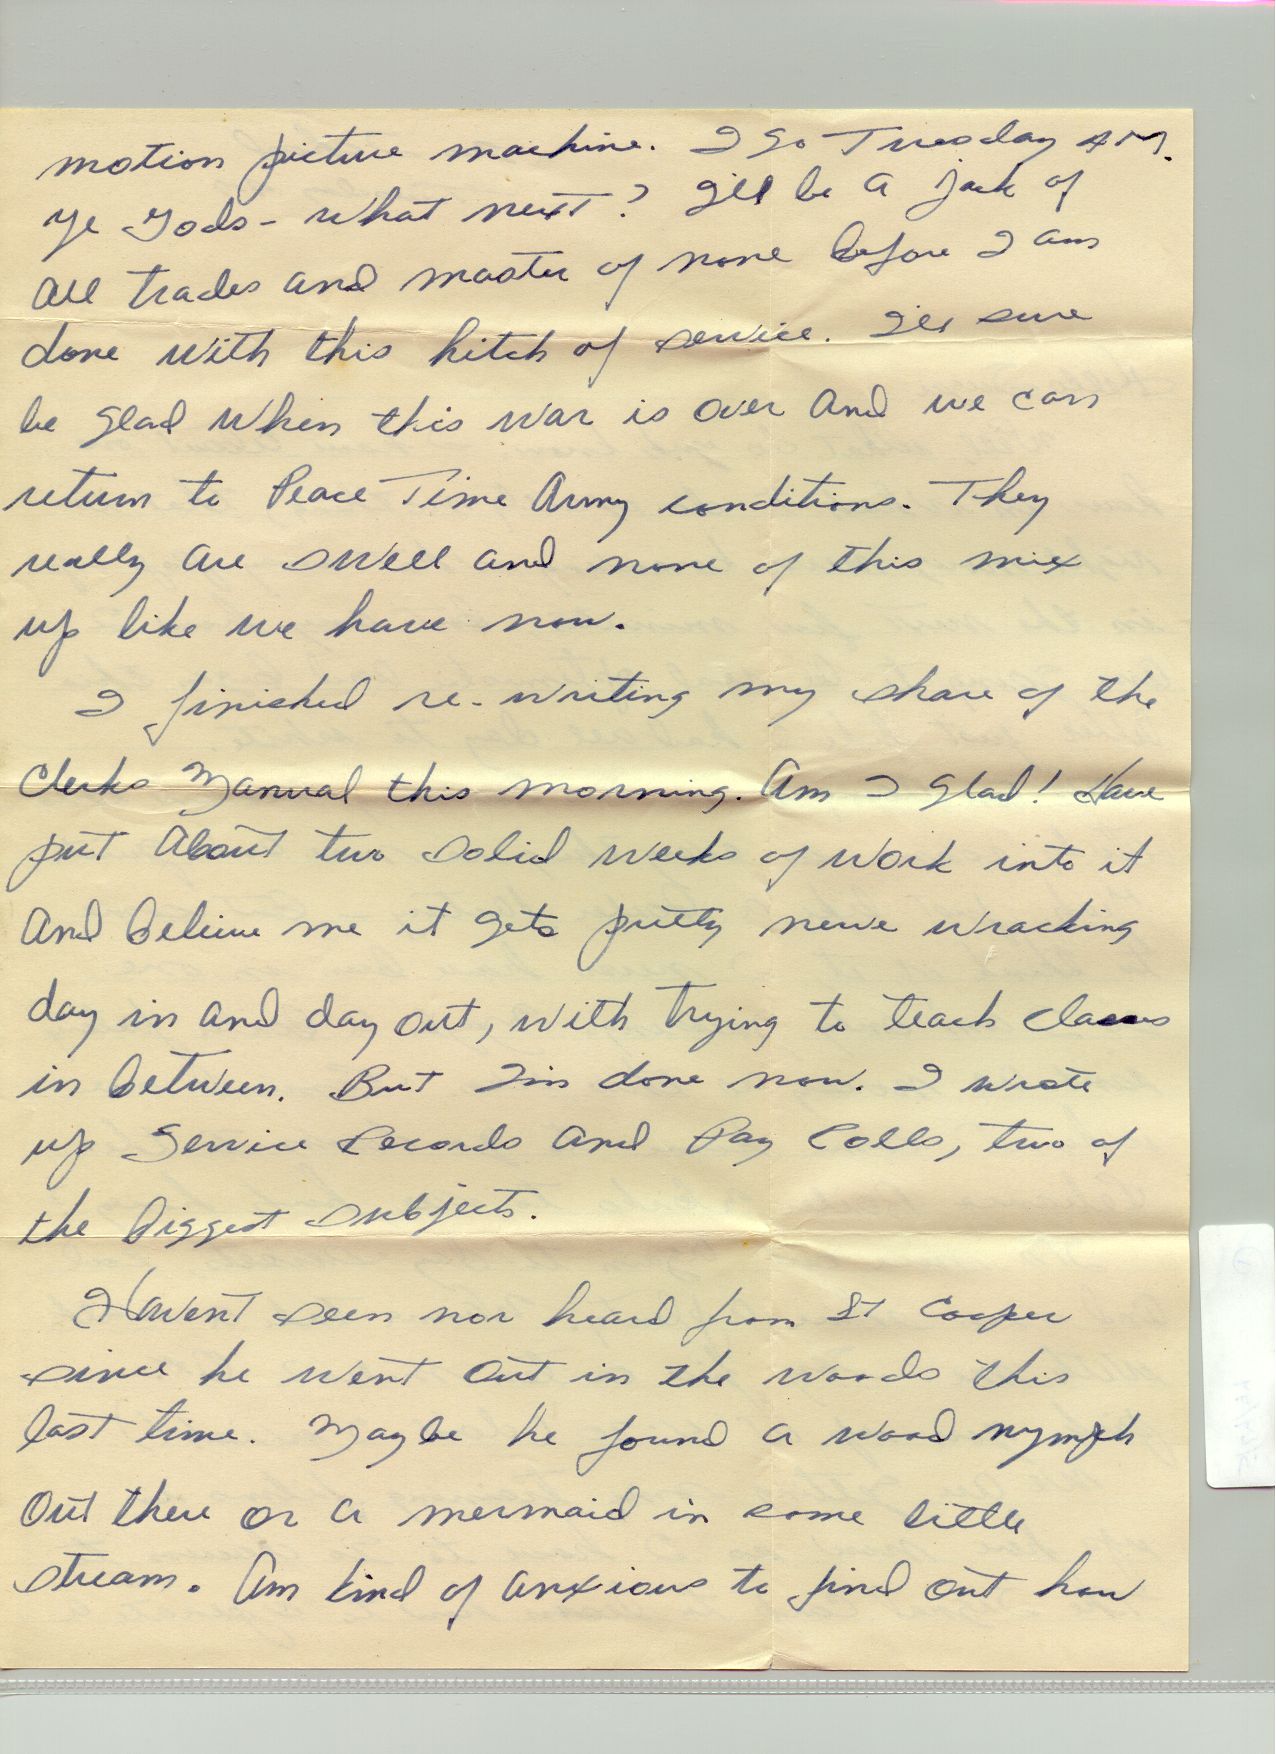 motion picture machine. I go Tuesday AM.
Ye Gods - what next? I'll be a jack of
all trades and master of none before I am
done with this hitch of service. I'll sure
be glad when this war is over and we can
return to Peace Time Army conditions. They
really are swell and none of this mix
up like we have now.
I finished re-writing my share of the
Clerks Manual this morning. Am I glad! Have
put about two solid weeks of work into it
and believe me it gets pretty nerve wracking
day in and day out, with trying to teach class
in between. But I'm done now. I wrote
up Service Records and Pay Rolls, two of
the biggest subjects.
Havent seen nor heard from Lt Cooper
since he went out in the woods this
last time. Maybe he found a wood nymph
out there or a mermaid in some little
stream. Am kind of anxious to find out how